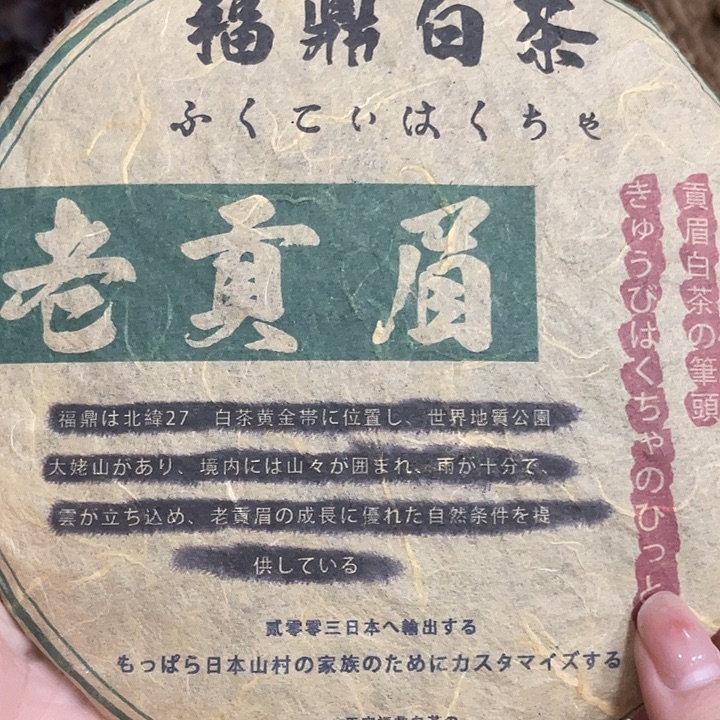 福鼎白茶
ふくてぃはくちゃ
老貢眉
貢眉白茶の筆頭
きゅうびはくちゃのひっと
福鼎は北緯27 白茶黄金帯に位置し、世界地質公園
太姥山があり、境内には山々が囲まれ、雨が十分で、
雲が立ち込め、老貢眉の成長に優れた自然条件を提
供している
貳零零三日本へ輸出する
もっぱら日本山村の家族のためにカスタマイズする